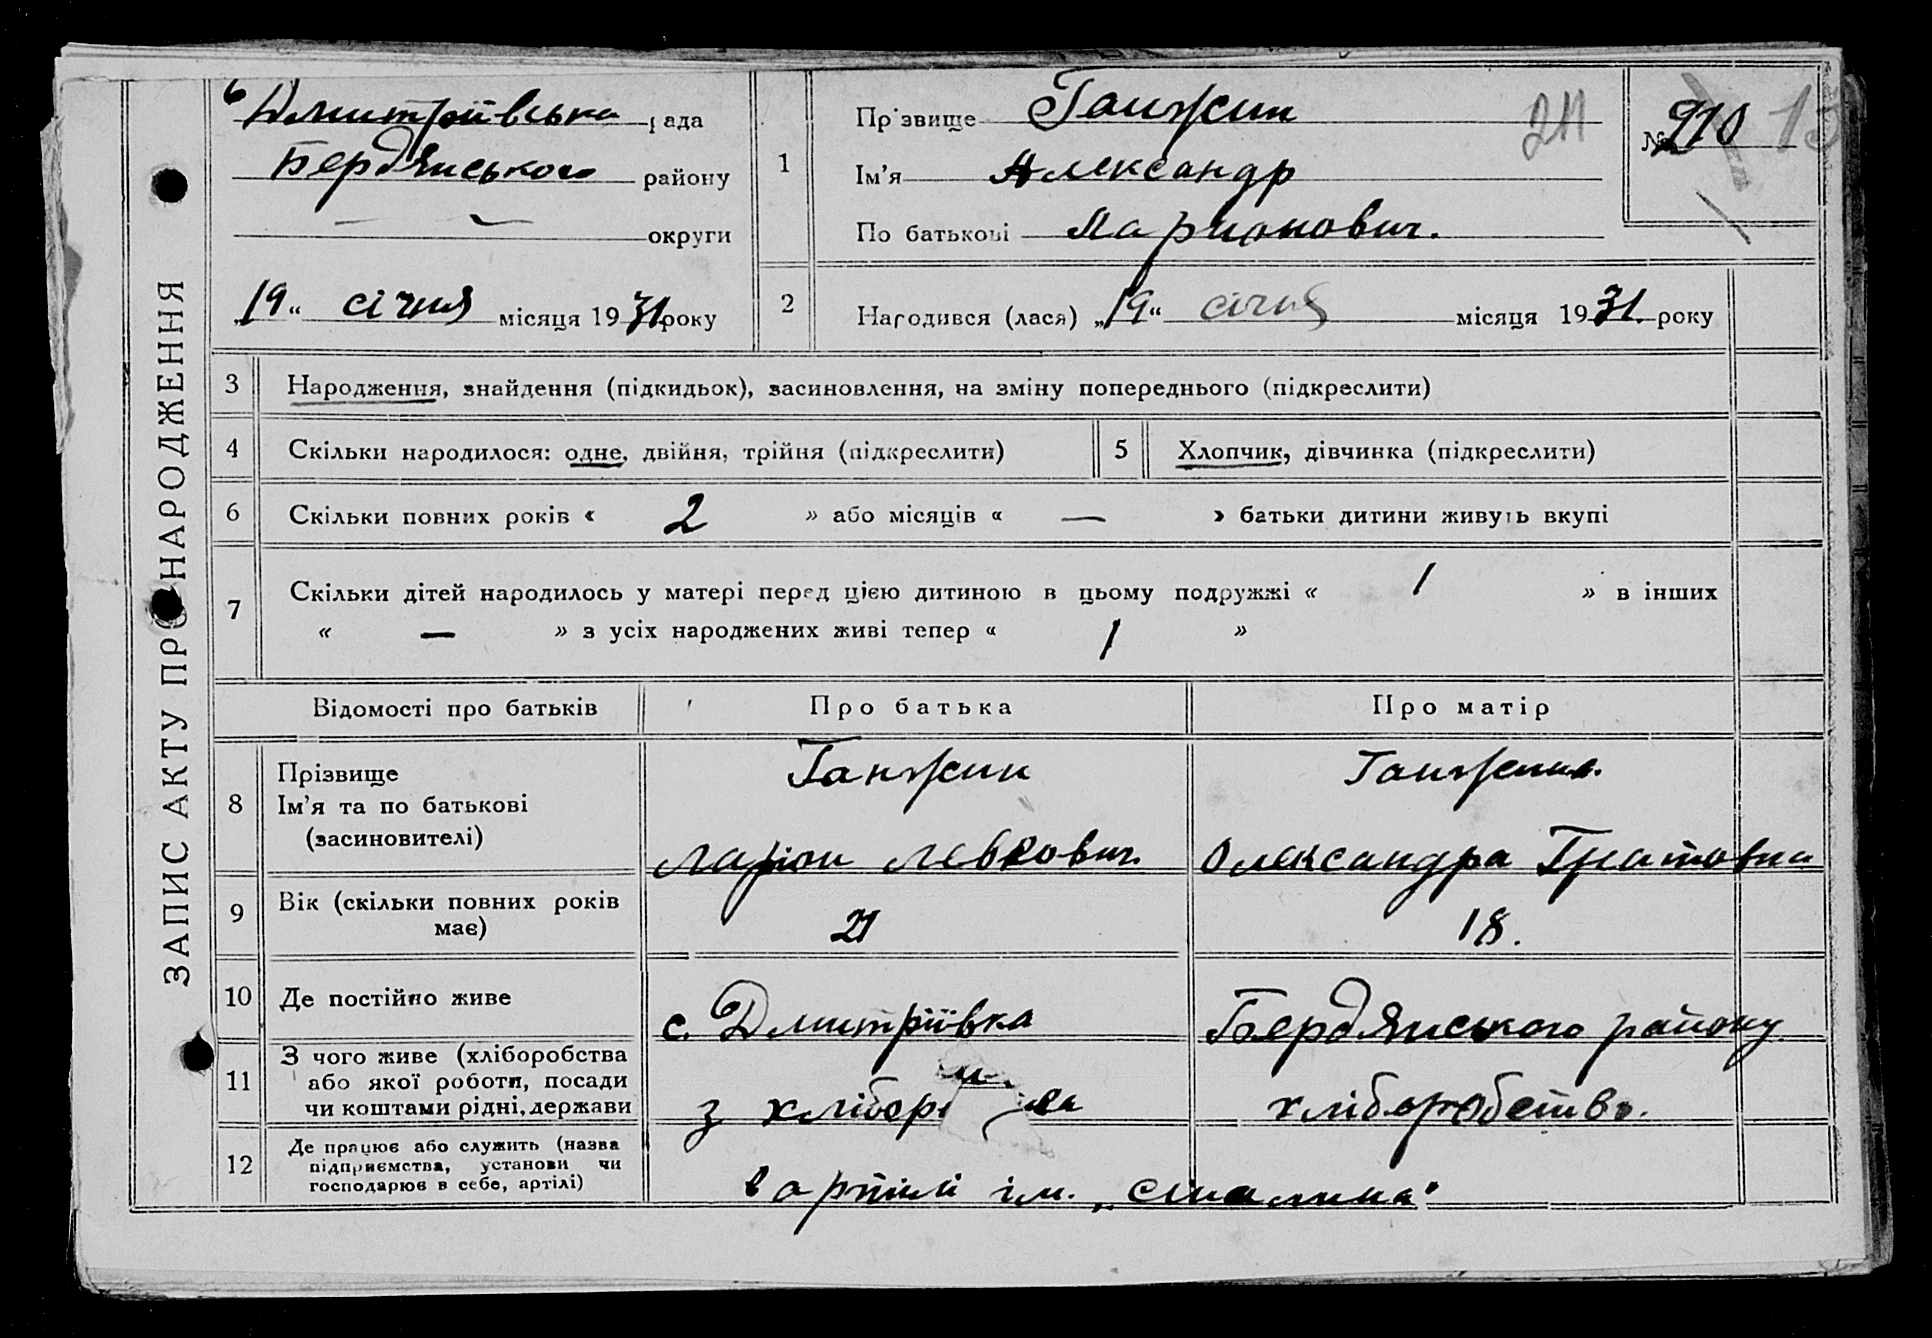 ЗАПИС АКТУ ПРО НАРОДЖЕННЯ
Дмитріївська рада
Бердянського району
округи
„19“ січня місяця 1931 року
1
Прізвище Ганжин
Ім'я Александр
По батькові Ларионович.
211
№ 210
2 Народився (лася) „19“ січня місяця 1931 року
3 Народження, знайдення (підкидьок), засиновлення, на зміну попереднього (підкреслити)
4 Скільки народилося: одне, двійня, трійня (підкреслити) 5 Хлопчик, дівчинка (підкреслити)
6 Скільки повних років « 2 » або місяців « — » батьки дитини живуть вкупі
7 Скільки дітей народилось у матері перед цією дитиною в цьому подружжі « 1 » в інших
« — » з усіх народжених живі тепер « 1 »
Відомості про батьків Про батька Про матір
8 Прізвище Ганжин Ганжина.
Ім'я та по батькові
(засиновителі) Ларіон Левкович. Олександра Гнатовна
9 Вік (скільки повних років
має) 21 18.
10 Де постійно живе с. Дмитріївка Бердянського району
11 З чого живе (хліборобства
або якої роботи, посади
чи коштами рідні, держави з хлібороб хліборобство.
12 Де працює або служить (назва
підприємства, установи чи
господарює в себе, артілі) в артілі ім. „Сталина"